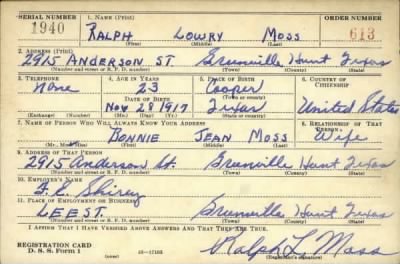 SERIAL NUMBER 1. NAME (Print) ORDER NUMBER
1940 RALPH LOWRY MOSS 613
(First) (Middle) (Last)
2. ADDRESS (Print)
2915 ANDERSON ST. Greenville Hunt Texas
(Number and street or R. F. D. number) (Town) (County) (State)
3. TELEPHONE 4. AGE IN YEARS 5. PLACE OF BIRTH 6. COUNTRY OF CITIZENSHIP
None 23 Cooper
DATE OF BIRTH (Town or county)
Nov 28 1917 Texas United States
(Exchange) (Number) (Mo.) (Day) (Yr.) (State or country)
7. NAME OF PERSON WHO WILL ALWAYS KNOW YOUR ADDRESS 8. RELATIONSHIP OF THAT PERSON
BONNIE JEAN MOSS Wife
(Mr., Mrs., Miss) (First) (Middle) (Last)
9. ADDRESS OF THAT PERSON
2915 Anderson St. Greenville Hunt Texas
(Number and street or R. F. D. number) (Town) (County) (State)
10. EMPLOYER'S NAME
11. PLACE OF EMPLOYMENT OR BUSINESS
LEE ST. Greenville Hunt Texas
(Number and street or R. F. D. number) (Town) (County) (State)
I AFFIRM THAT I HAVE VERIFIED ABOVE ANSWERS AND THAT THEY ARE TRUE.
REGISTRATION CARD
D. S. S. Form 1 (over) Ralph L Moss
(Registrant's signature)